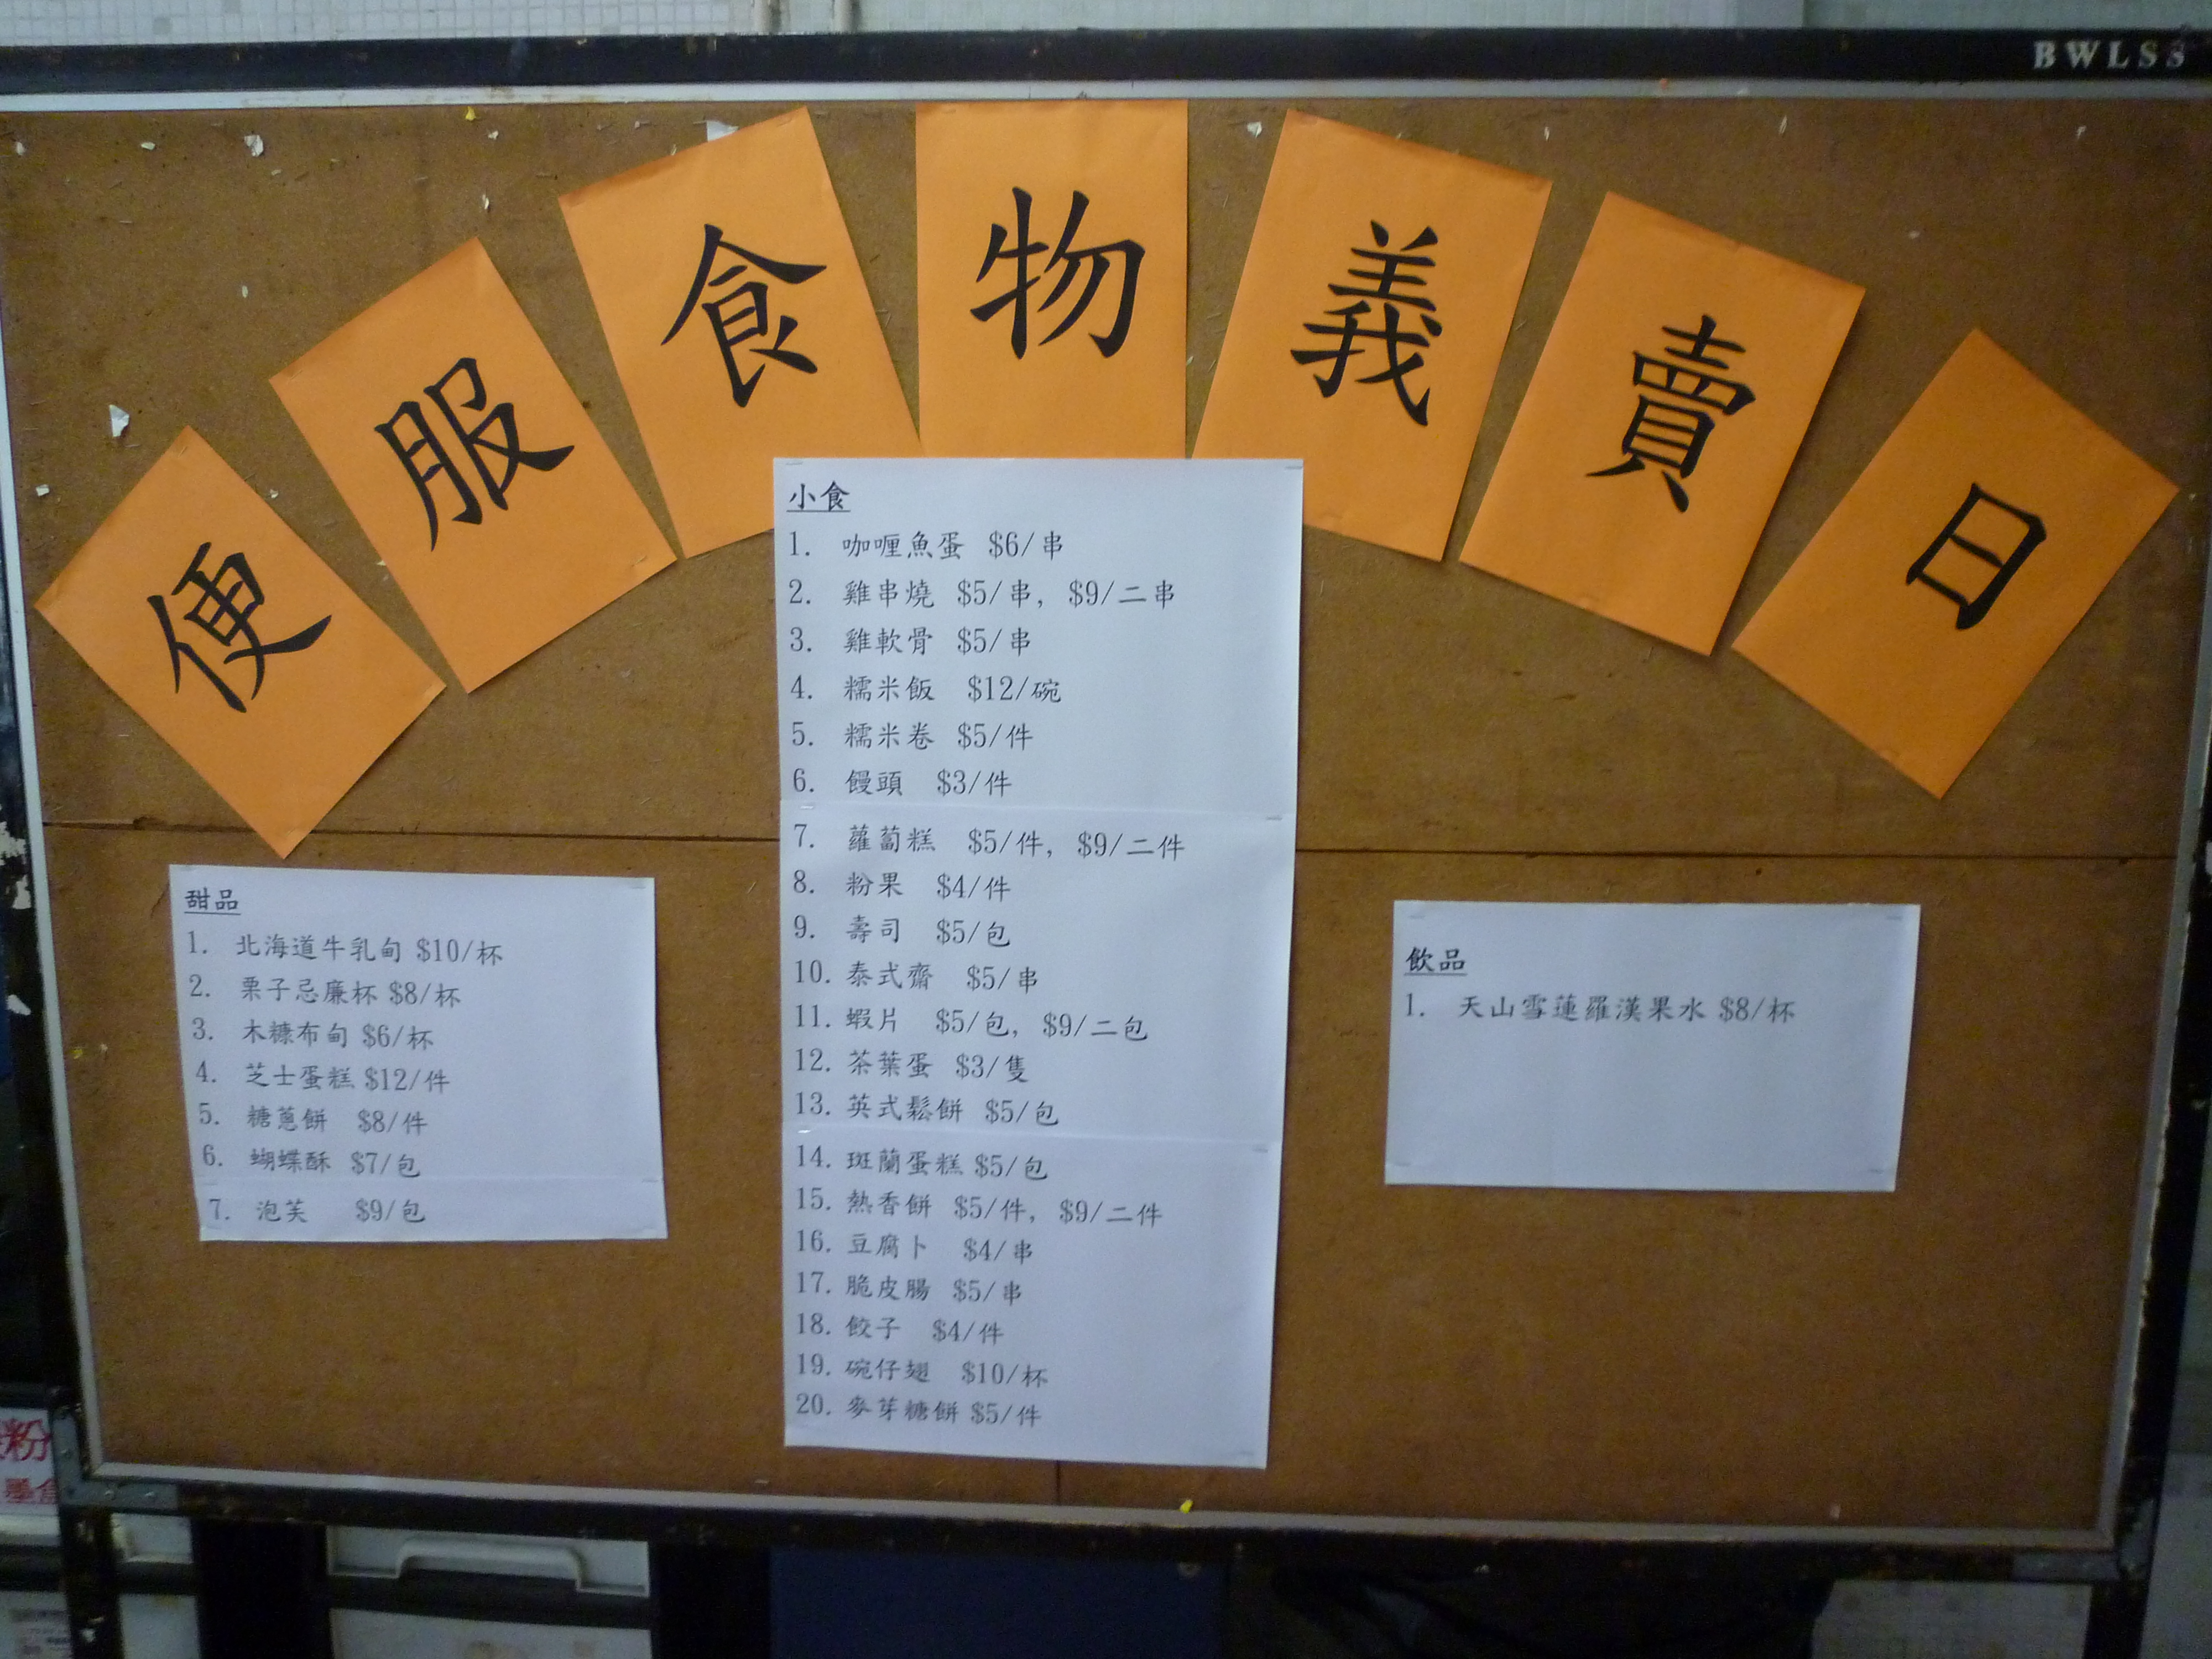 BWLSS
便服食物義賣日
小食
1. 咖喱魚蛋 $6/串
2. 雞串燒 $5/串, $9/二串
3. 雞軟骨 $5/串
4. 糯米飯 $12/碗
5. 糯米卷 $5/件
6. 饅頭 $3/件
7. 蘿蔔糕 $5/件, $9/二件
8. 粉果 $4/件
9. 壽司 $5/包
10. 泰式齋 $5/串
11. 蝦片 $5/包, $9/二包
12. 茶葉蛋 $3/隻
13. 英式鬆餅 $5/包
14. 斑蘭蛋糕 $5/包
15. 熱香餅 $5/件, $9/二件
16. 豆腐卜 $4/串
17. 脆皮腸 $5/串
18. 餃子 $4/件
19. 碗仔翅 $10/杯
20. 麥芽糖餅 $5/件
甜品
1. 北海道牛乳甸 $10/杯
2. 栗子忌廉杯 $8/杯
3. 木糠布甸 $6/杯
4. 芝士蛋糕 $12/件
5. 糖蔥餅 $8/件
6. 蝴蝶酥 $7/包
7. 泡芙 $9/包
飲品
1. 天山雪蓮羅漢果水 $8/杯
粉
墨盒